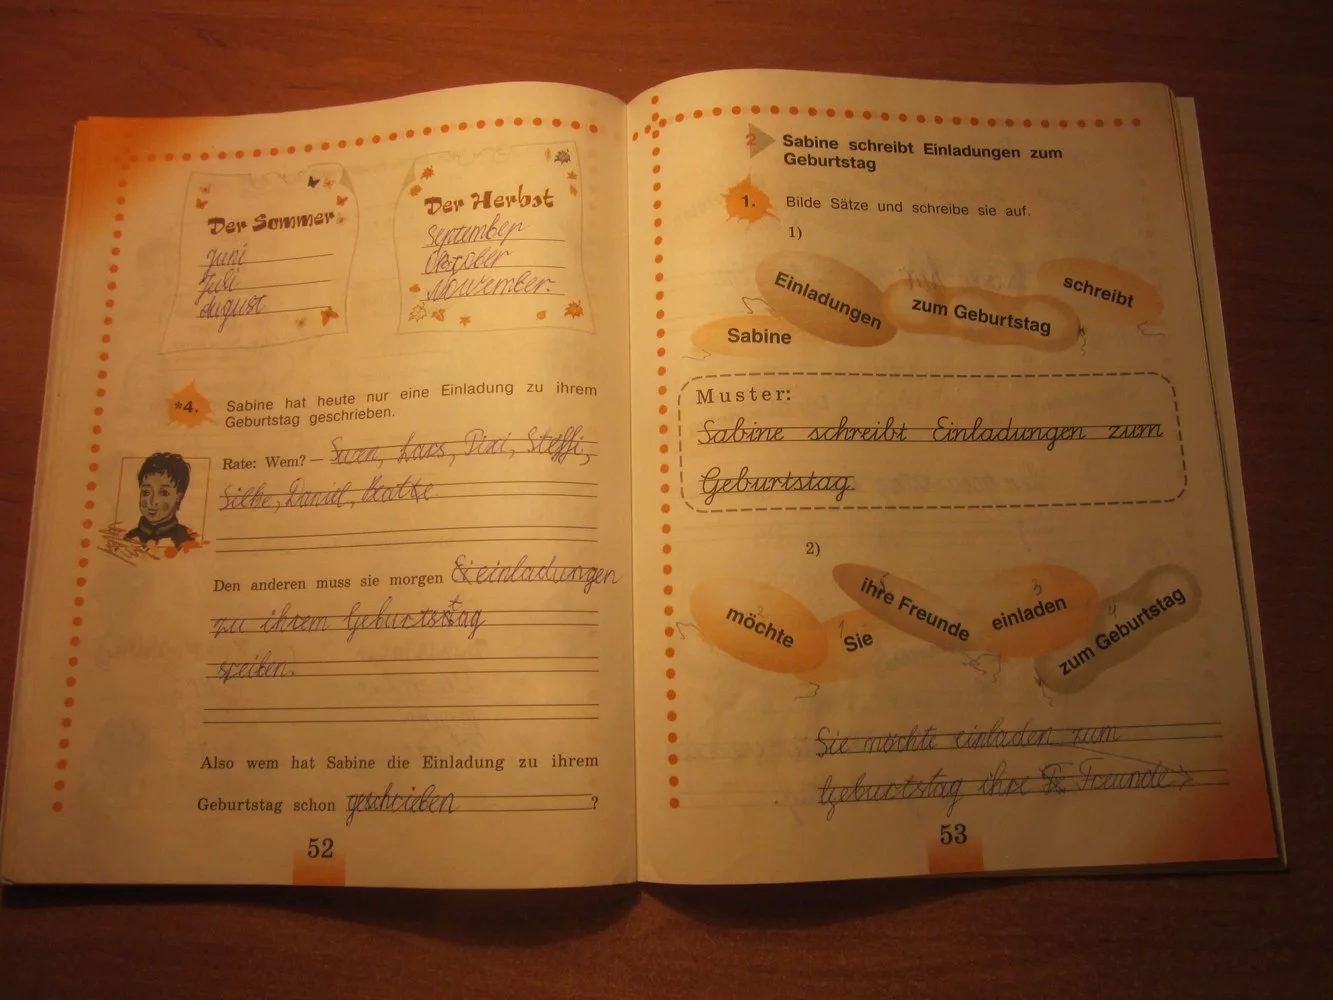 Der Sommer
Juni
Juli
August
Der Herbst
September
Oktober
Nowember.
*4. Sabine hat heute nur eine Einladung zu ihrem
Geburtstag geschrieben.
Rate: Wem? – Swen, Lars, Pixi, Steffi,
Silke, Daniel, Beatke.
Den anderen muss sie morgen einladungen
zu ihrem Geburtstag
Also wem hat Sabine die Einladung zu ihrem
Geburtstag schon geschrieben ?
52
2 Sabine schreibt Einladungen zum
Geburtstag
1. Bilde Sätze und schreibe sie auf.
1)
Sabine Einladungen zum Geburtstag schreibt
Muster:
Sabine schreibt Einladungen zum
Geburtstag.
2)
möchte Sie ihre Freunde einladen zum Geburtstag
2 1 5 3 4
Sie möchte einladen zum
Geburtstag ihre Freunde
53